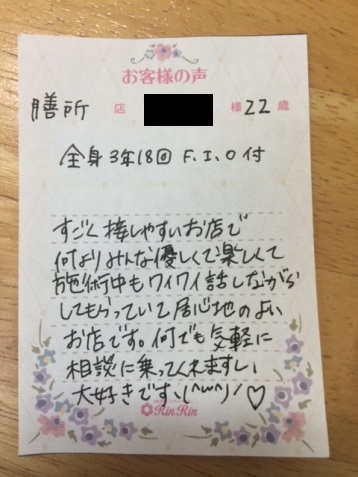 お客様の声
膳所 店 様 22 歳
全身3年18回 F.I.O付
すごく接しやすいお店で
何よりみんな優しくて楽しくて
施術中もワイワイ話しながら
してもらっていて居心地のよい
お店です。何でも気軽に
相談に乗ってくれますし、
大好きです、(^w^)/♡
RinRin